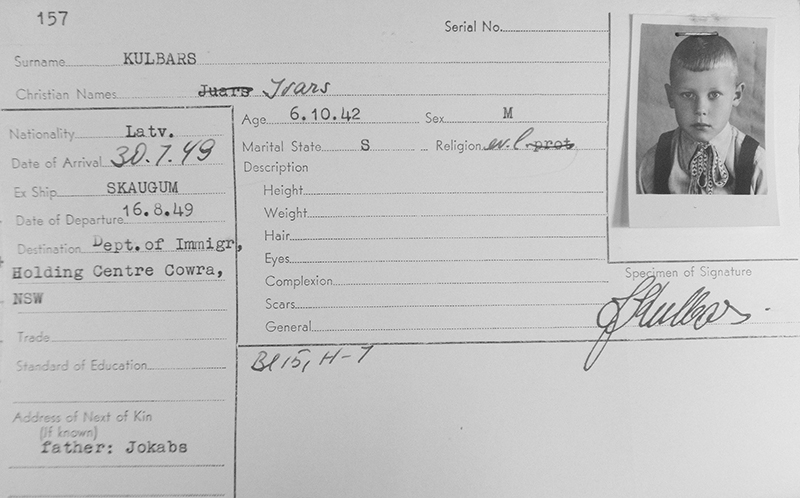 157
Serial No.
Surname KULBARS
Christian Names Juars Ivars
Nationality Latv.
Date of Arrival 30.7.49
Ex Ship SKAUGUM
Date of Departure 16.8.49
Destination Dept. of Immigr,
Holding Centre Cowra,
NSW
Trade
Standard of Education
Address of Next of Kin
(If known)
father: Jokabs
Age 6.10.42 Sex M
Marital State S Religion ev. l. prot
Description
Height
Weight
Hair
Eyes
Complexion
Scars
General
Bl 15, H-7
Specimen of Signature
J Kulbars.